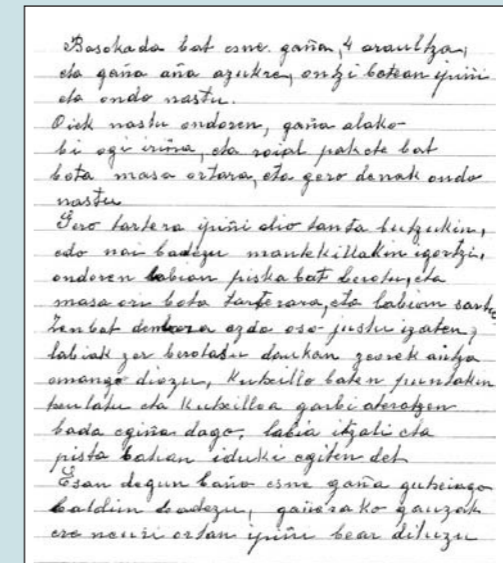 Basokada bat esne gaña, 4 araultza,
eta gaña aña azukre, ontzi batean ipiñi
eta ondo nastu.
Oiek nastu ondoren, gaña alako
bi ogi iriña, eta roial pakete bat
bota masa ortara, eta gero denak ondo
nastu
Gero tartera ipiñi dio tanta butzukin,
edo nai badezu mantekillakin igortzi,
ondoren labian piska bat berotu, eta
masa ori bota tarterara, eta labiam sartu
Zenbat denbora ezda oso justu izaten,
labiak zer berotasu daukan zeorek antza
emango diozu, Kutxillo baten puntakin
eta Kutxilloa garbi ateratzen
bada egiña dago, labia itzali eta
pista batian iduki egiten det
Esan degun baño esne gaña gutxiago
baldin badezu, gañerako gauzak
ere neurri ortan ipiñi bear dituzu